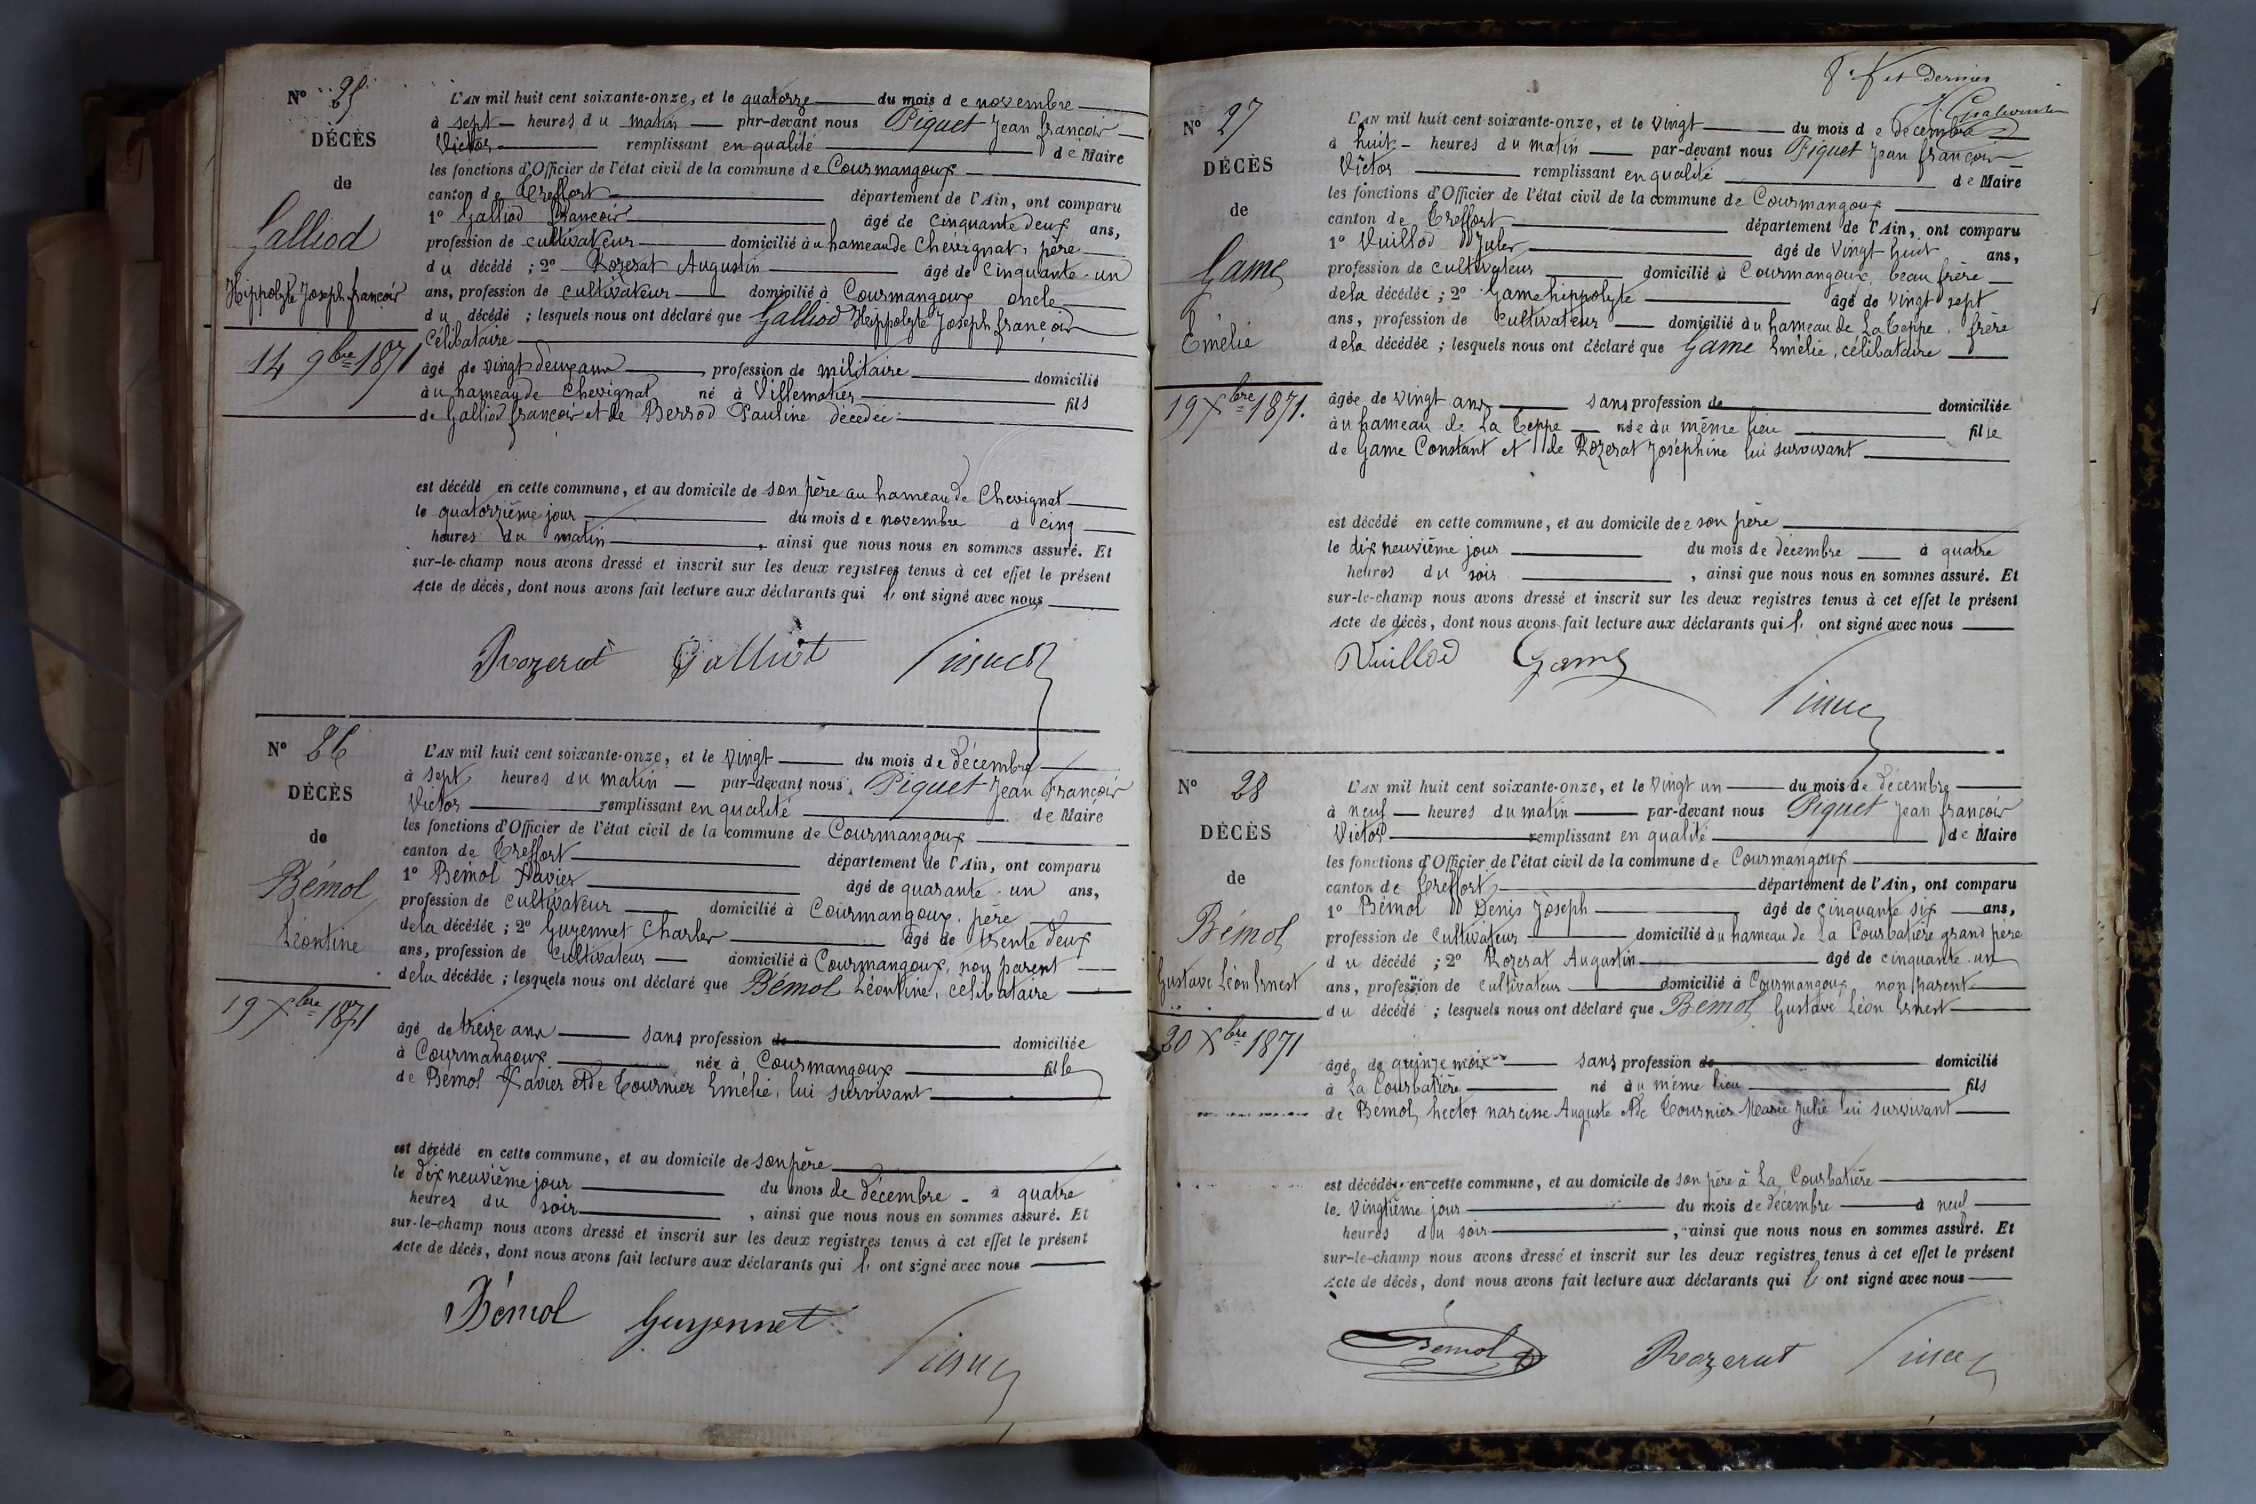 Nº 25
DÉCÈS
de
Galliod
Hippolyte Joseph françois
14 9bre 1871
L'AN mil huit cent soixante-onze, et le quatorze du mois de novembre
à sept heures du matin par-devant nous Piquet Jean françois
Victor remplissant en qualité de Maire
les fonctions d'Officier de l'état civil de la commune de Courmangoux
canton de Treffort département de l'Ain, ont comparu
1º Galliod françois âgé de cinquante deux ans,
profession de cultivateur domicilié au hameau de Chevignat, père
du décédé ; 2º Rozerat Augustin âgé de cinquante-un
ans, profession de cultivateur domicilié à Courmangoux oncle
du décédé ; lesquels nous ont déclaré que Galliod Hippolyte Joseph françois
Célibataire
âgé de vingt deux ans profession de militaire domicilié
au hameau de Chevignat né à Villemotier fils
de Galliod françois et de Berrod Pauline décédée
est décédé en cette commune, et au domicile de son père au hameau de Chevignat
le quatorzième jour du mois de novembre à cinq
heures du matin, ainsi que nous nous en sommes assuré. Et
sur-le-champ nous avons dressé et inscrit sur les deux registres tenus à cet effet le présent
Acte de décès, dont nous avons fait lecture aux déclarants qui l' ont signé avec nous
Rozerat Galliod Piquet
Nº 26
DÉCÈS
de
Bémol
Léontine
19 Xbre 1871
L'AN mil huit cent soixante-onze, et le vingt du mois de décembre
à sept heures du matin par-devant nous Piquet Jean François
Victor remplissant en qualité de Maire
les fonctions d'Officier de l'état civil de la commune de Courmangoux
canton de Treffort département de l'Ain, ont comparu
1º Bémol Xavier âgé de quarante-un ans,
profession de cultivateur domicilié à Courmangoux, père
de la décédée ; 2º Guyennet Charles âgé de trente deux
ans, profession de cultivateur domicilié à Courmangoux, non parent
de la décédée ; lesquels nous ont déclaré que Bémol Léontine, célibataire
âgé de treize ans sans profession de domiciliée
à Courmangoux née à Courmangoux fille
de Bémol Xavier et de Tournier Emélie, lui survivant
est décédé en cette commune, et au domicile de son père
le dix neuvième jour du mois de décembre à quatre
heures du soir, ainsi que nous nous en sommes assuré. Et
sur-le-champ nous avons dressé et inscrit sur les deux registres tenus à cet effet le présent
Acte de décès, dont nous avons fait lecture aux déclarants qui l' ont signé avec nous
Bémol Guyennet Piquet
et dernier
Nº 27
DÉCÈS
de
Game
Emélie
19 Xbre 1871.
L'AN mil huit cent soixante-onze, et le vingt du mois de décembre
à huit heures du matin par-devant nous Piquet Jean françois
Victor remplissant en qualité de Maire
les fonctions d'Officier de l'état civil de la commune de Courmangoux
canton de Treffort département de l'Ain, ont comparu
1º Vuillod Jules âgé de vingt huit ans,
profession de cultivateur domicilié à Courmangoux, beau frère
de la décédée ; 2º Game hippolyte âgé de vingt sept
ans, profession de cultivateur domicilié au hameau de La Teppe, frère
de la décédée ; lesquels nous ont déclaré que Game Emélie, célibataire
âgée de vingt ans sans profession de domiciliée
au hameau de La Teppe née au même lieu fille
de Game Constant et de Rozerat Joséphine lui survivant
est décédé en cette commune, et au domicile de son père
le dix neuvième jour du mois de décembre à quatre
heures du soir, ainsi que nous nous en sommes assuré. Et
sur-le-champ nous avons dressé et inscrit sur les deux registres tenus à cet effet le présent
Acte de décès, dont nous avons fait lecture aux déclarants qui l' ont signé avec nous
Vuillod Game Piquet
Nº 28
DÉCÈS
de
Bémol
Gustave Léon Ernest
20 Xbre 1871
L'AN mil huit cent soixante-onze, et le vingt un du mois de décembre
à neuf heures du matin par-devant nous Piquet Jean françois
Victor remplissant en qualité de Maire
les fonctions d'Officier de l'état civil de la commune de Courmangoux
canton de Treffort département de l'Ain, ont comparu
1º Bémol Denis Joseph âgé de cinquante six ans,
profession de cultivateur domicilié au hameau de La Courbatière grand père
du décédé ; 2º Rozerat Augustin âgé de cinquante-un
ans, profession de cultivateur domicilié à Courmangoux non parent
du décédé ; lesquels nous ont déclaré que Bémol Gustave Léon Ernest
âgé de quinze mois sans profession de domicilié
à La Courbatière né au même lieu fils
de Bémol hector narcisse Auguste et de Tournier Marie Julie lui survivant
est décédé en cette commune, et au domicile de son père à La Courbatière
le vingtième jour du mois de décembre à neuf
heures du soir, ainsi que nous nous en sommes assuré. Et
sur-le-champ nous avons dressé et inscrit sur les deux registres tenus à cet effet le présent
Acte de décès, dont nous avons fait lecture aux déclarants qui l' ont signé avec nous
Bémol Rozerat Piquet